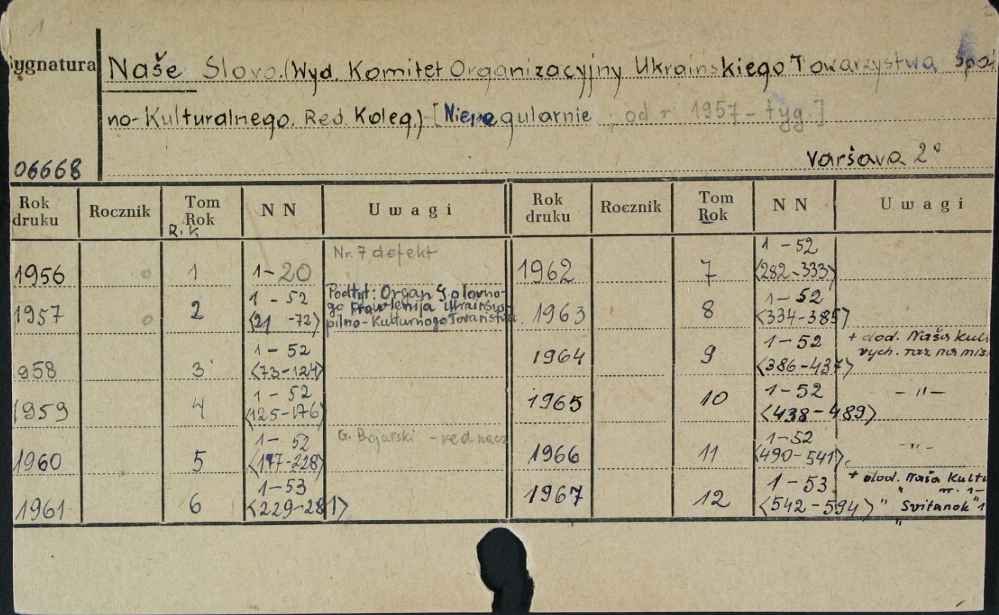 1
ygnatura Naše Slovo. (Wyd. Komitet Organizacyjny Ukrainskiego Towarzystwa Społ
no-Kulturalnego. Red. Koleg.) [Nieregularnie ; od r. 1957 - tyg.]
06668 Varšava 2°
Rok druku Rocznik Tom Rok NN Uwagi Rok druku Rocznik Tom Rok NN Uwagi
R. k
1956 1 1-20 Nr. 7 defekt 1962 7 1-52 <282-333>
1957 2 1-52 <21-72> Podtyt: Organ Golovno-
go Pravlenija Ukrains'ko
pil'no-Kulturnogo Tovaristva 1963 8 1-52 <334-385>
958 3 1-52 <73-124> 1964 9 1-52 <386-437> + dod. Naša Kult
vych. raz na mis
1959 4 1-52 <125-176> 1965 10 1-52 <438-489> -"-
1960 5 1-52 <177-228> G. Bojarski - red. nacz 1966 11 1-52 <490-541> -"-
1961 6 1-53 <229-281> 1967 12 1-53 <542-594> + dod. Naša Kultu
" nr. 1-
" Svitanok" 1
"